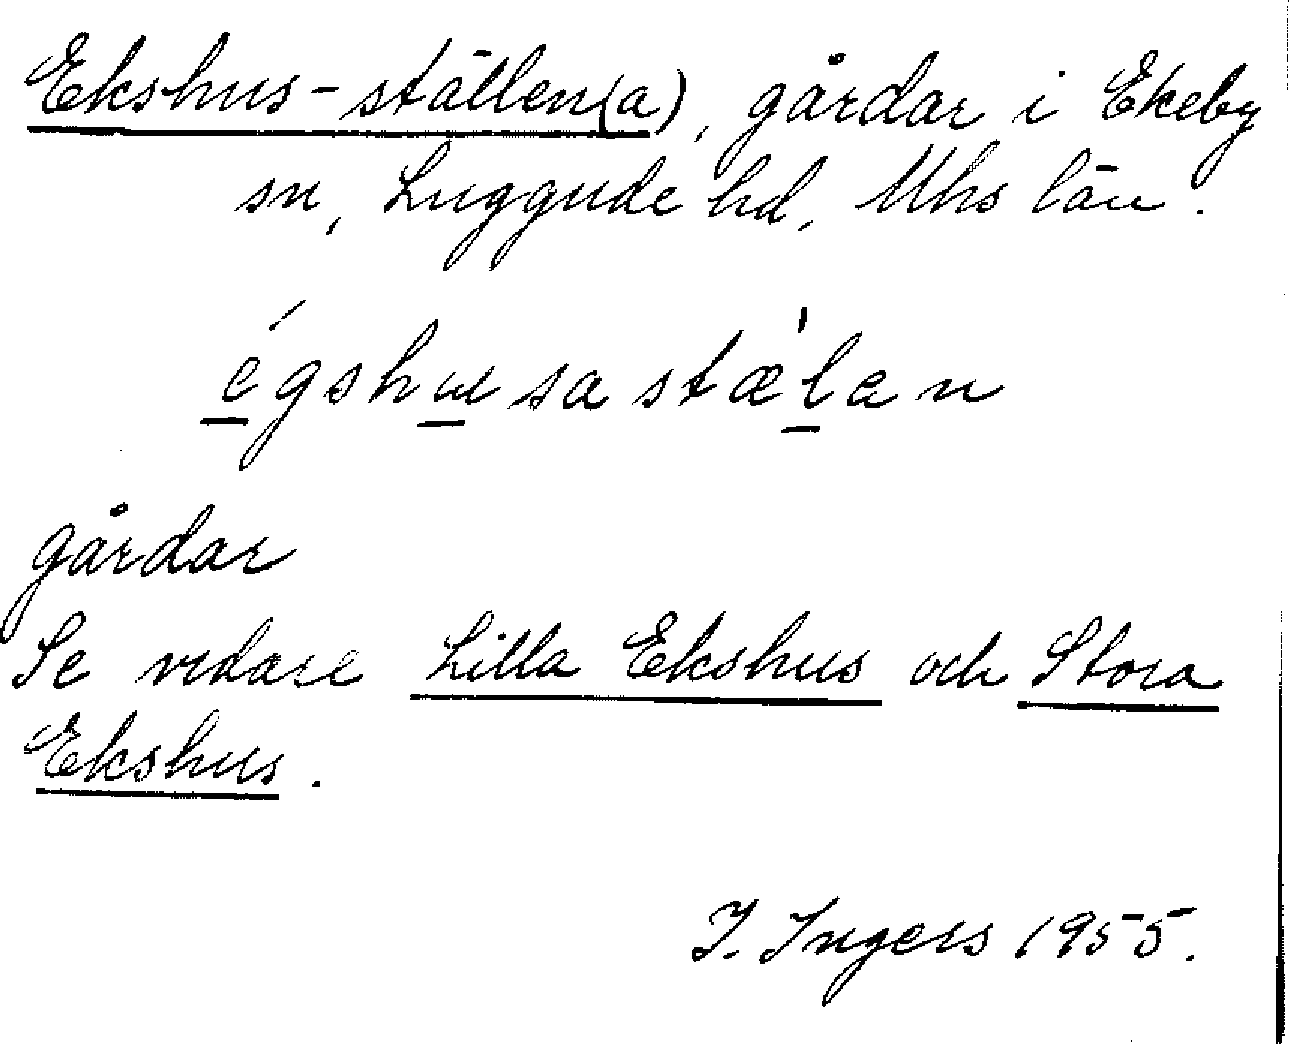 Ekshus-ställen(a), gårdar i Ekeby
sn, Luggude hd, Mhs län.
égshusastæ'lan
gårdar
Se vidare Lilla Ekshus och Stora
Ekshus.
I. Ingers 1955.